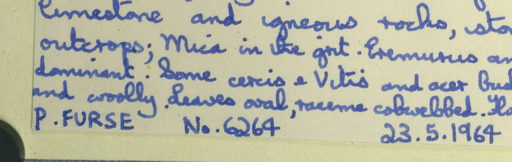 limestone and igneous rocks, sto
outcrops; Mica in the grit. Eremurus an
dominant. Some cercis & Vitis and acer bus
and woolly. Leaves oval, raceme cobwebbed. Flo
P. FURSE No. 6264 23.5.1964